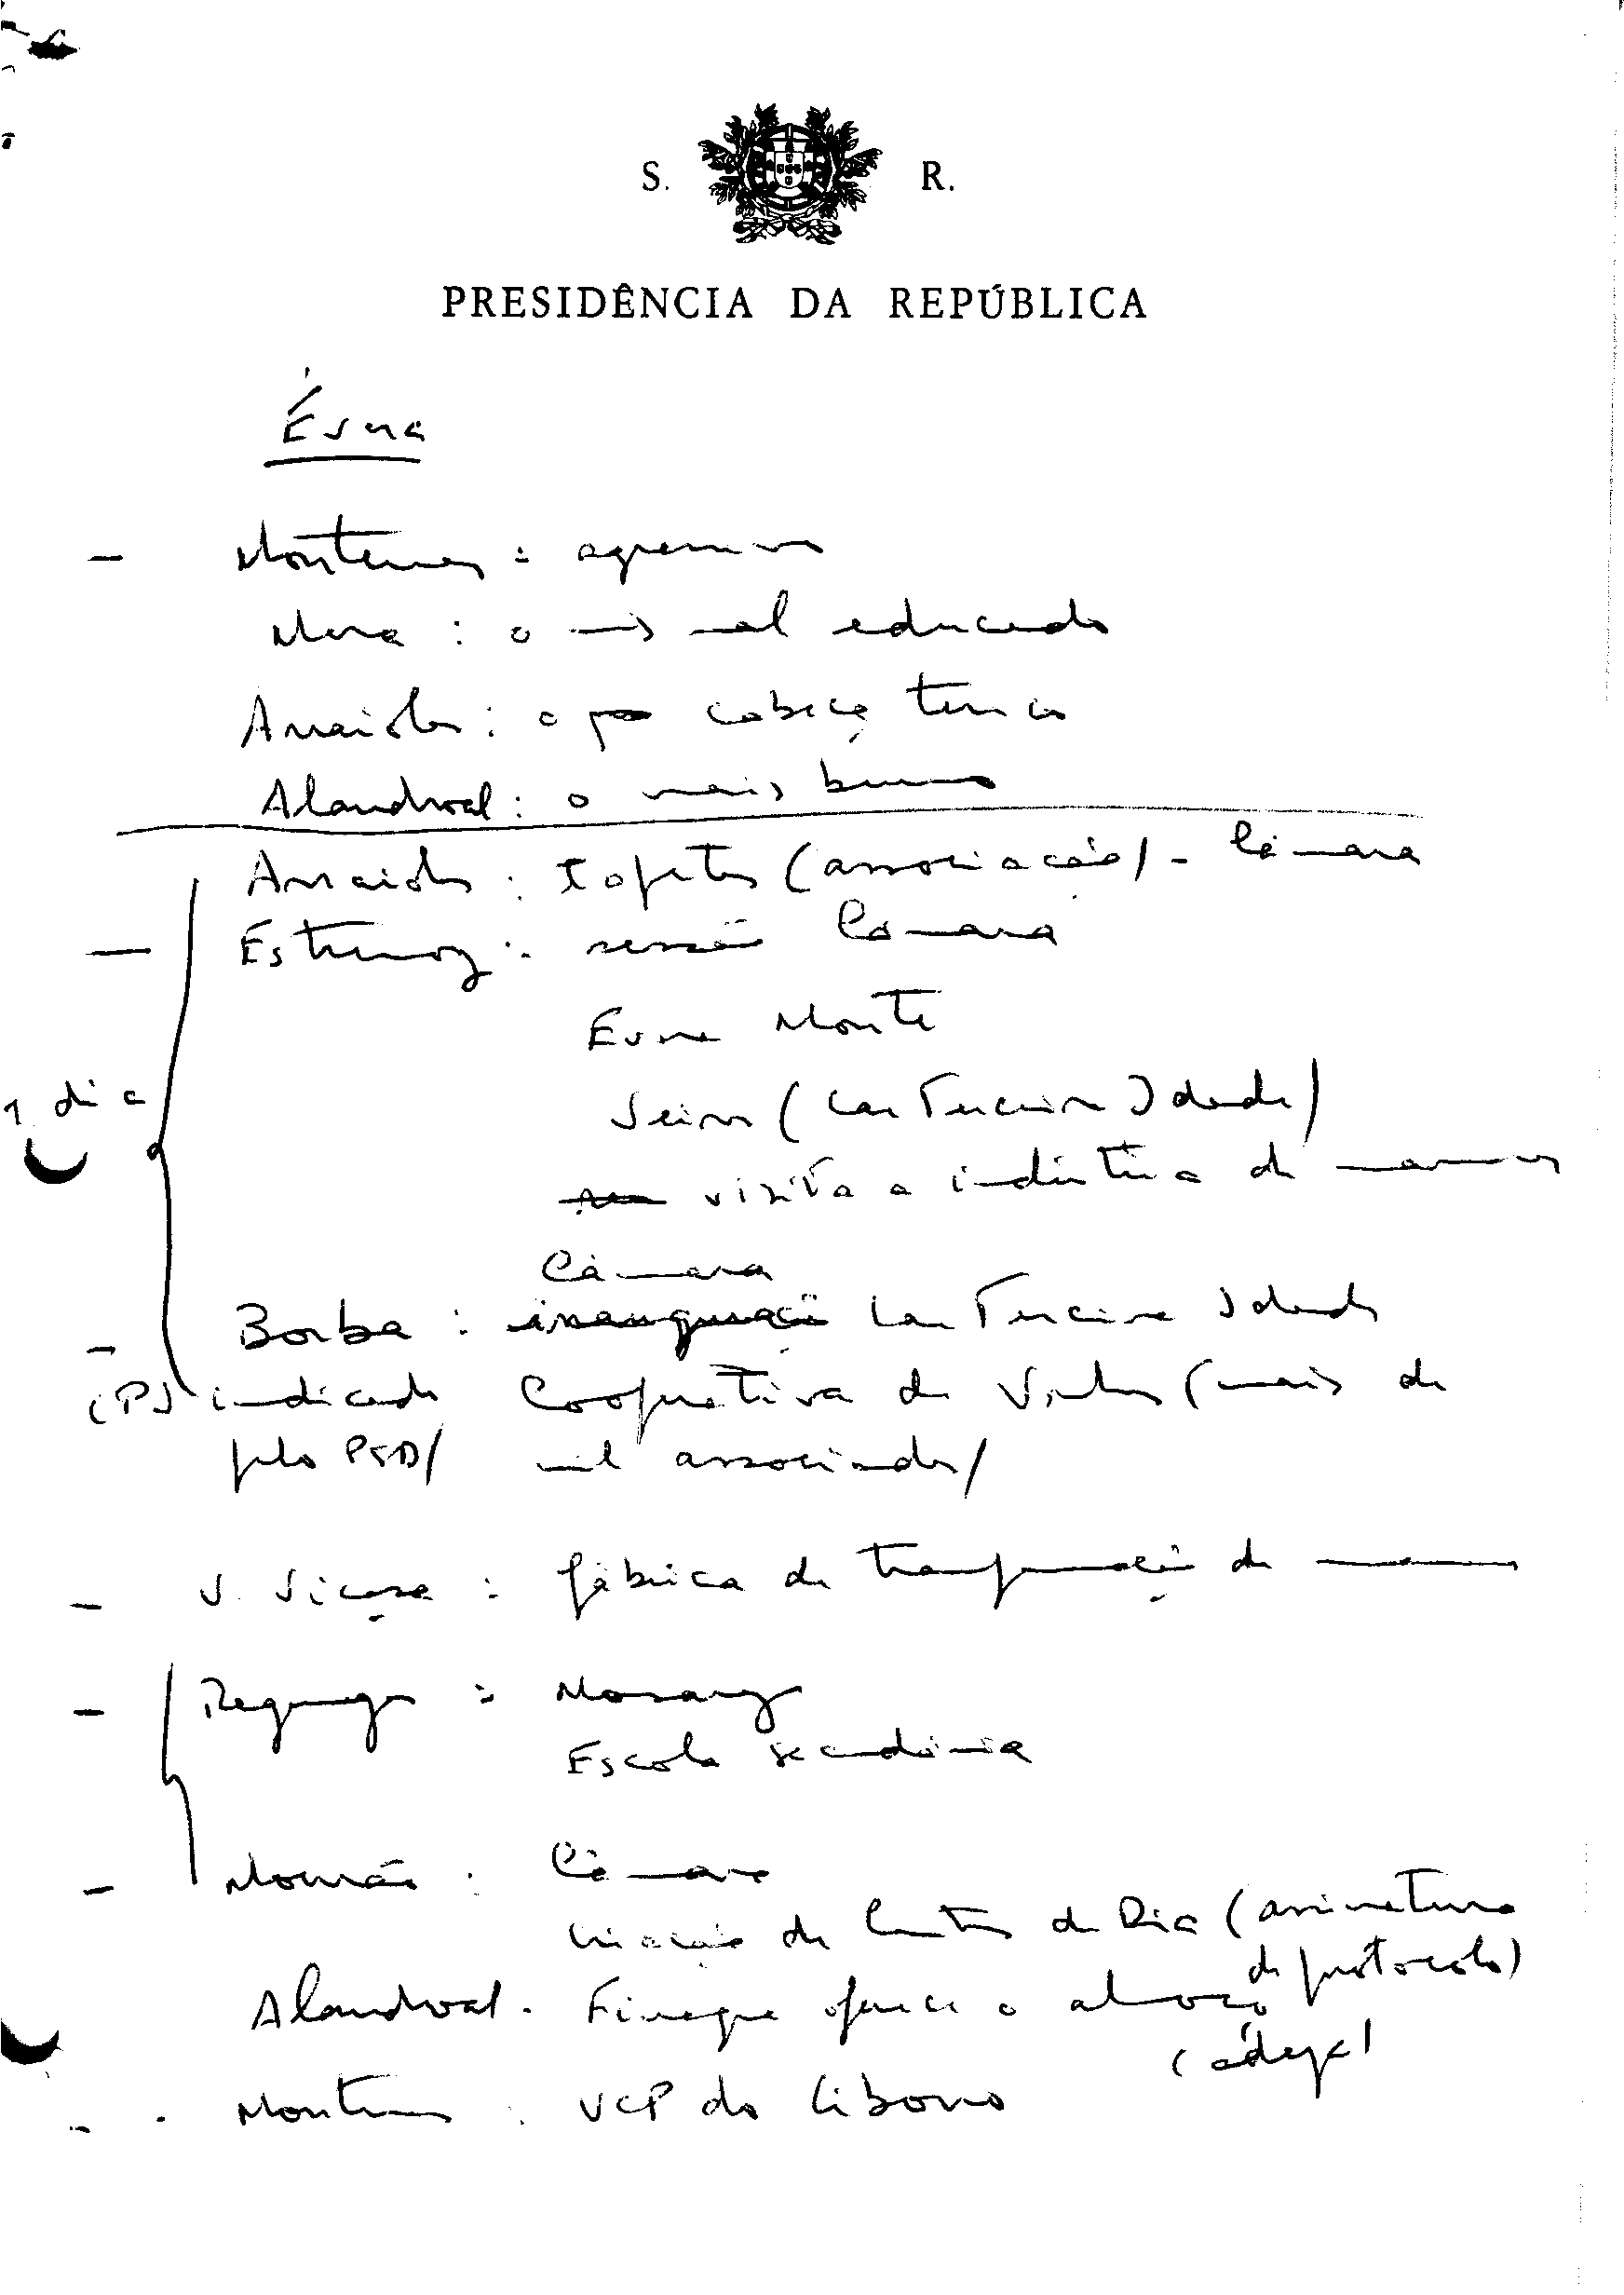 S. R.
PRESIDÊNCIA DA REPÚBLICA
Évora
- Montemor : agressivo
Mora : o mais mal educado
Arraiolos : o cabeça
Alandroal : o mais burro
Arraiolos : tapetes (associação) - Câmara
- Estremoz : sessão Câmara
Évora Monte
1 dia
Veiros (Lar Terceira Idade)
visita a indústria de mármores
Câmara
- Borba : inauguração Lar Terceira Idade
(PS indicado Cooperativa de Vinhos (mais de
pelo PSD) mil associados)
- V. Viçosa : fábrica de transformação de mármores
- Reguengos : Monsaraz
Escola secundária
- Mourão : Câmara
criação de Centro de Dia (assinatura
de protocolo)
Alandroal . oferece o almoço
(adega)
- Montemor : UCP do Ciborro